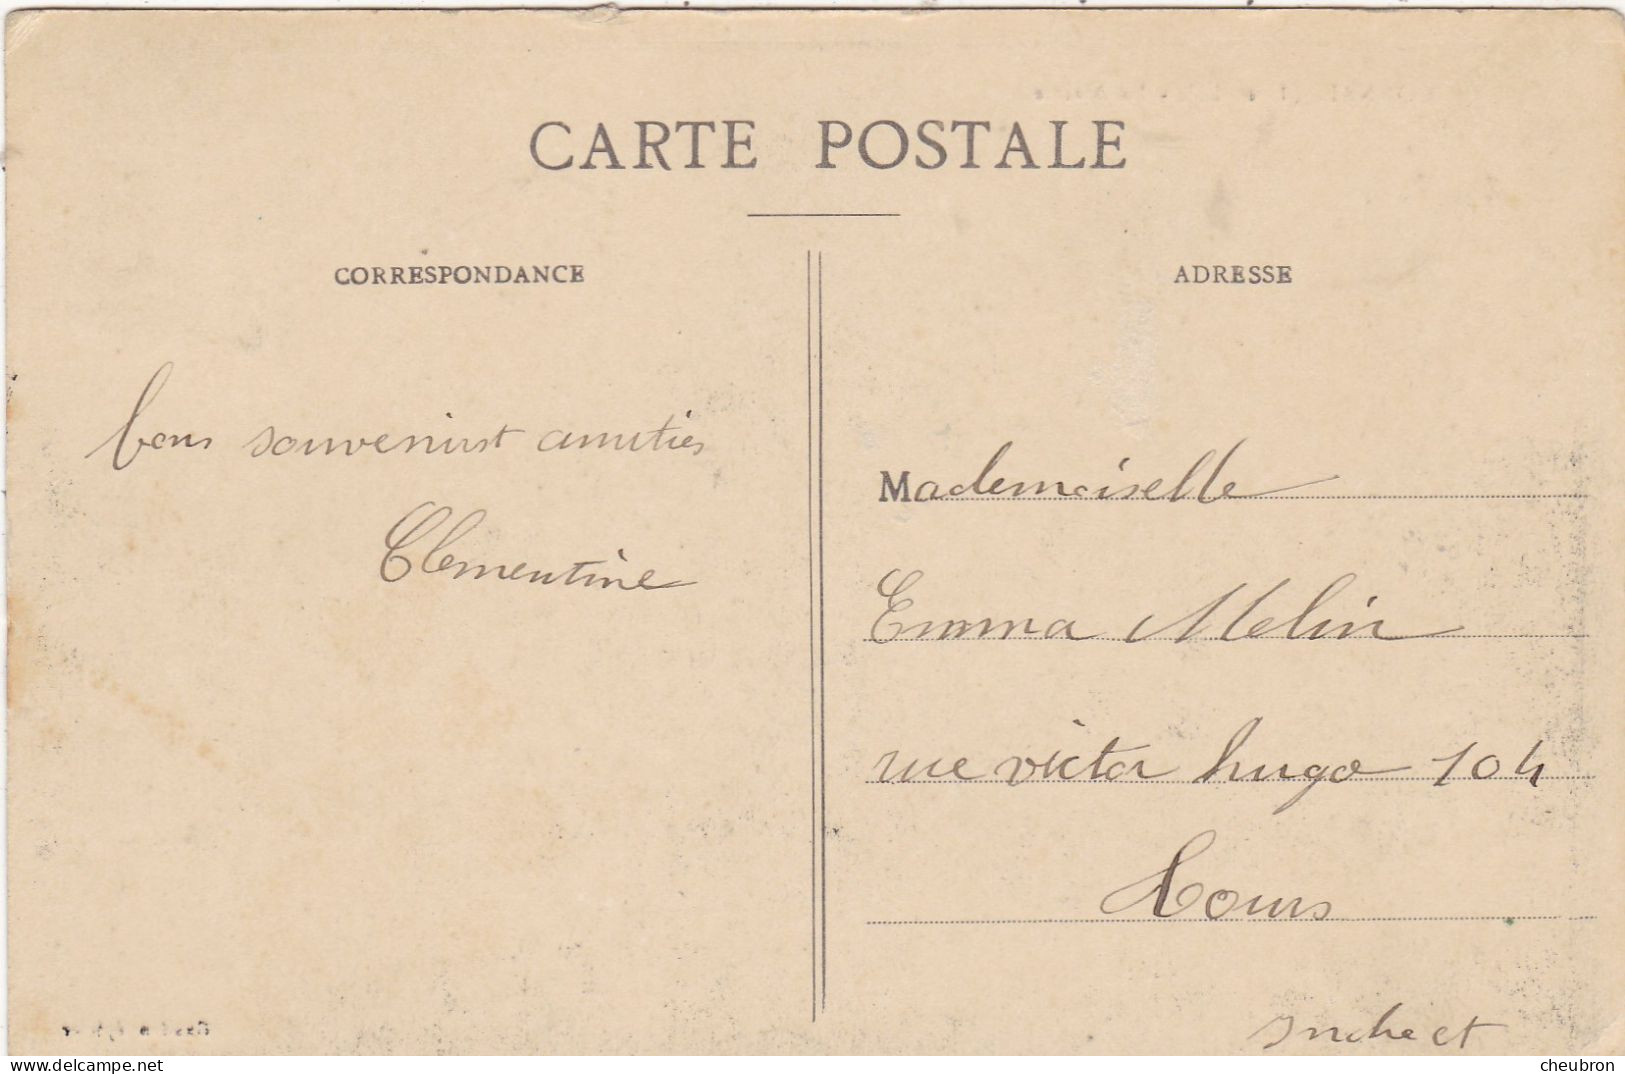 CARTE POSTALE
CORRESPONDANCE
ADRESSE
bons souvenirs et amitiés
Clementine
Mademoiselle
Emma Melin
rue victor hugo 104
Tours
Indre et
delcampe.net
cheubron